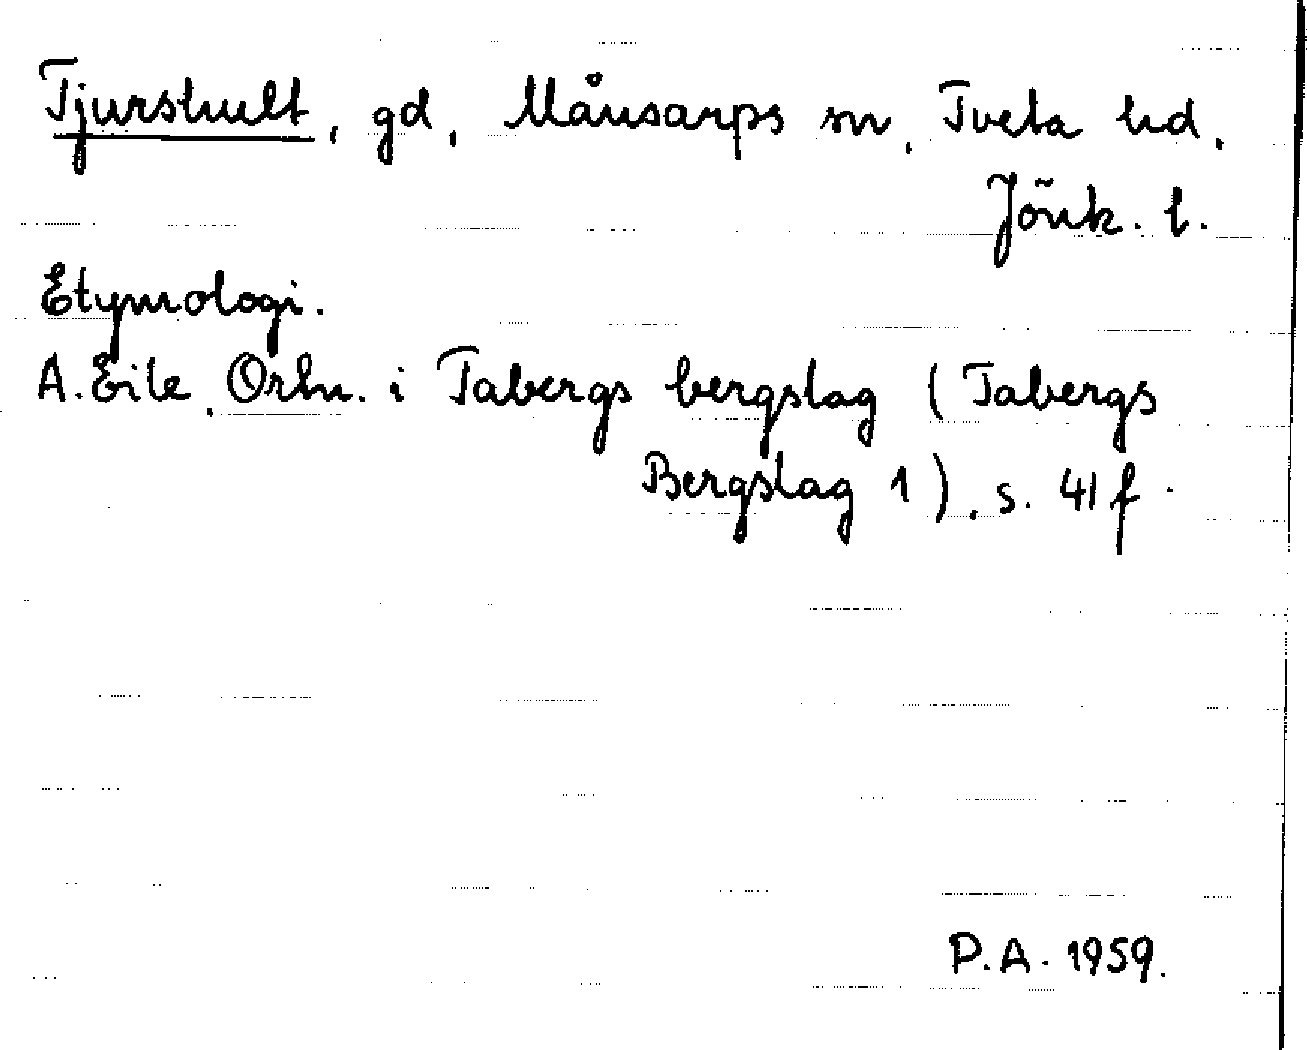 Tjurshult, gd, Månsarps sn, Tveta hd,
Jönk. l.
Etymologi.
A. Eile, Ortn. i Tabergs bergslag (Tabergs
Bergslag 1), s. 41 f.
P.A. 1959.